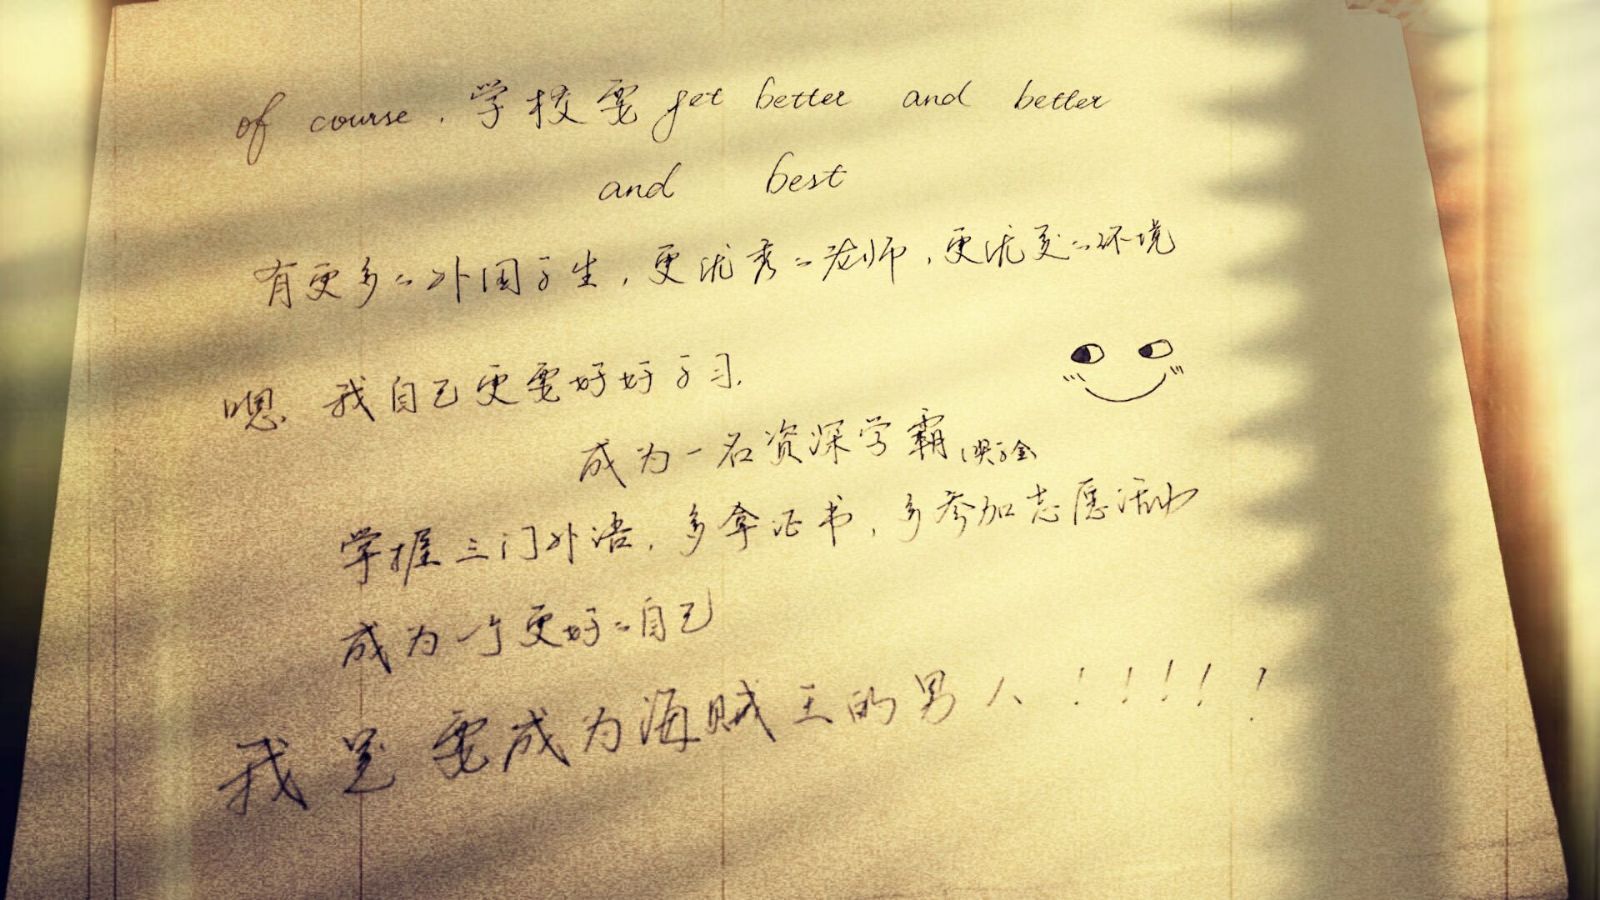 of course，学校要 get better and better
and best
有更多的外国学生，更优秀的老师，更优美的环境
嗯 我自己更要好好学习.
成为一名资深学霸（奖学金
掌握三门外语，多拿证书，多参加志愿活动
成为一个更好的自己
我是要成为海贼王的男人！！！！！！